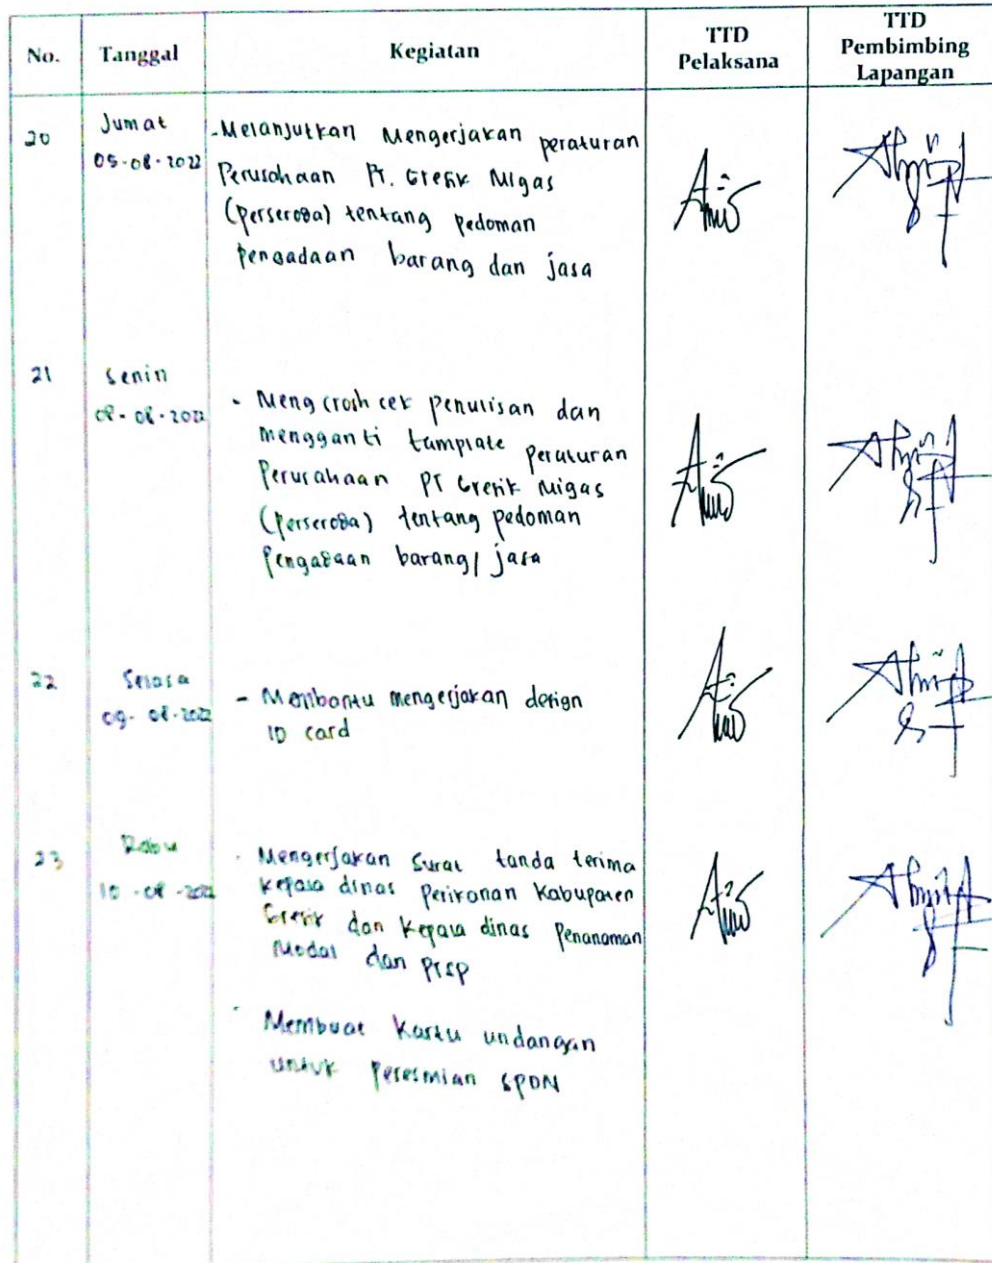 No. Tanggal Kegiatan TTD Pelaksana TTD Pembimbing Lapangan
20
Jumat
05-08-2022
- Melanjutkan Mengerjakan peraturan
Perusahaan Pt. Gresik Migas
(perseroda) tentang pedoman
pengadaan barang dan jasa
21
Senin
08-08-2022
- Mengcrosh cek penulisan dan
mengganti tamplate peraturan
Perusahaan PT Gresik Migas
(Perseroda) tentang pedoman
Pengadaan barang/jasa
22
Selasa
09-08-2022
- Membantu mengerjakan design
ID card
23
Rabu
10-08-2022
- Mengerjakan Surat tanda terima
kepala dinas Perikanan Kabupaten
Gresik dan Kepala dinas Penanaman
Modal dan PTSP
- Membuat Kartu undangan
untuk Peresmian SPDN